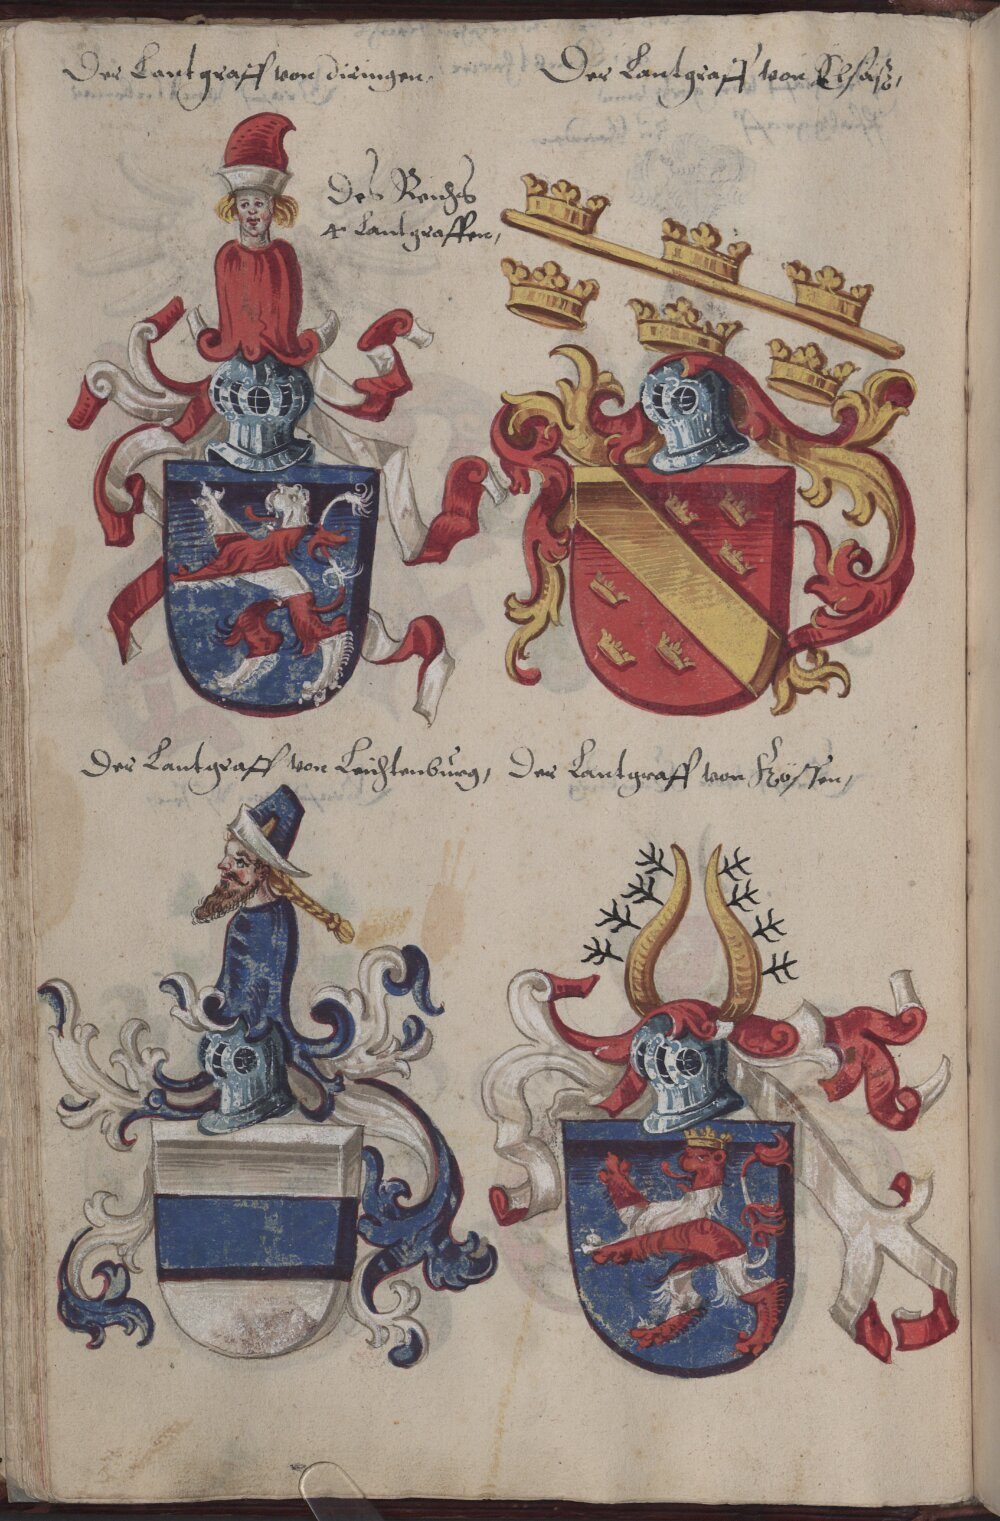 Der Lantgraff von Diringen,
Der Lantgraff von Elsäß,
Des Reichs
4 Lantgraffen,
Der Lantgraff von Leichtenburg,
Der Lantgraff von Hössen,